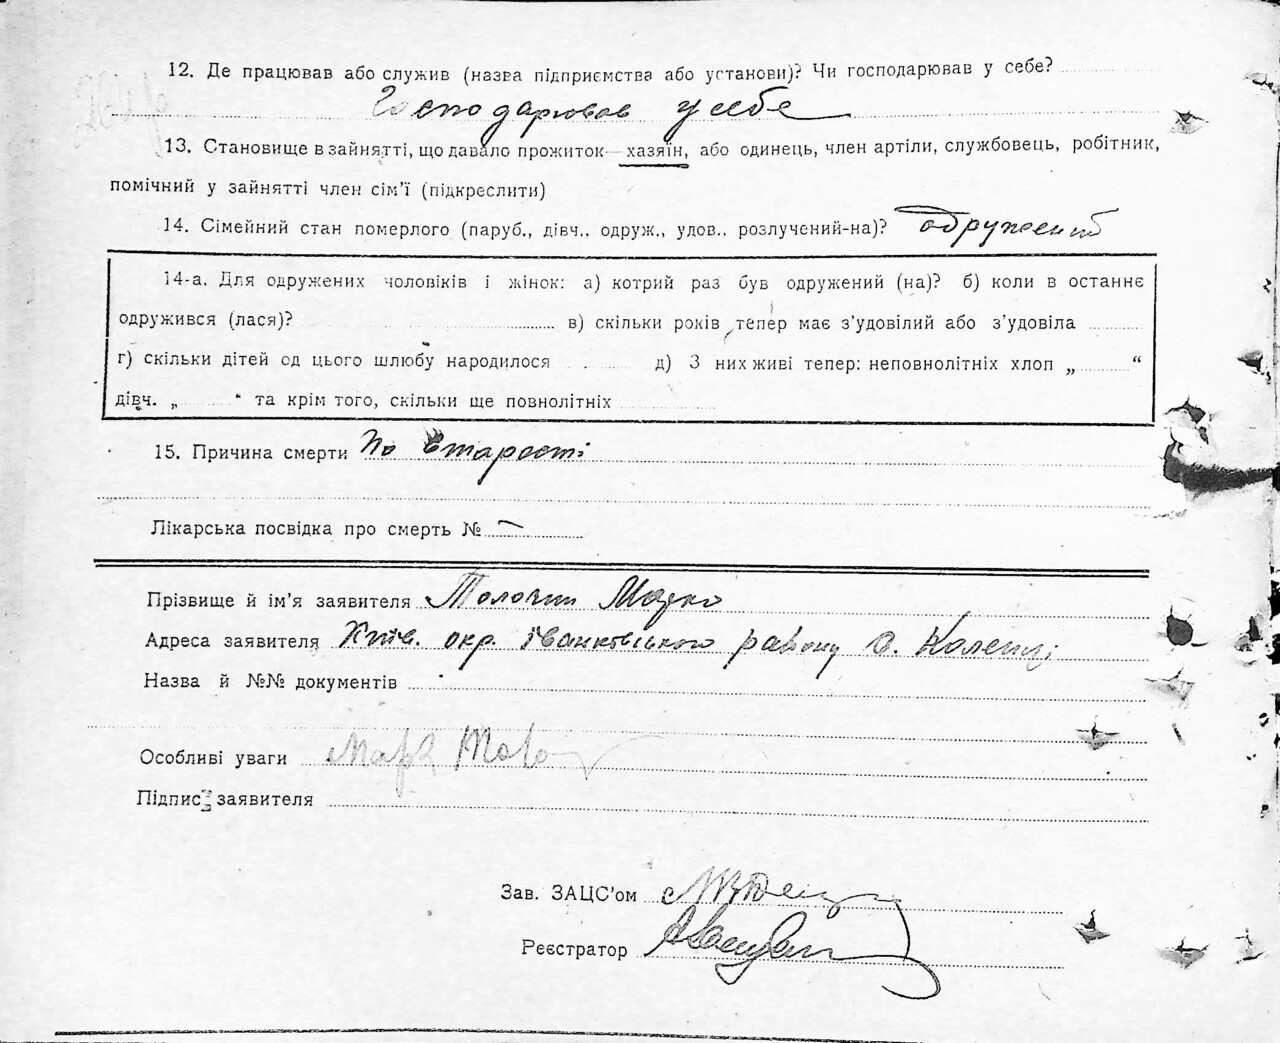 12. Де працював або служив (назва підприємства або установи)? Чи господарював у себе?
Господарював у себе
13. Становище в зайнятті, що давало прожиток — хазяїн, або одинець, член артіли, службовець, робітник,
помічний у зайнятті член сім’ї (підкреслити)
14. Сімейний стан померлого (паруб., дівч., одруж., удов., розлучений-на)? одружений
14-а. Для одружених чоловіків і жінок: а) котрий раз був одружений (на)? б) коли в останнє
одружився (лася)? в) скільки років тепер має з’удовілий або з’удовіла
г) скільки дітей од цього шлюбу народилося д) З них живі тепер: неповнолітніх хлоп „ “
дівч. „ “ та крім того, скільки ще повнолітніх
15. Причина смерти по старости
Лікарська посвідка про смерть № —
Прізвище й ім’я заявителя Марко
Адреса заявителя Київ. окр. Іванківського району с.
Назва й №№ документів
Особливі уваги
Підпис заявителя
Зав. ЗАЦС’ом
Реєстратор